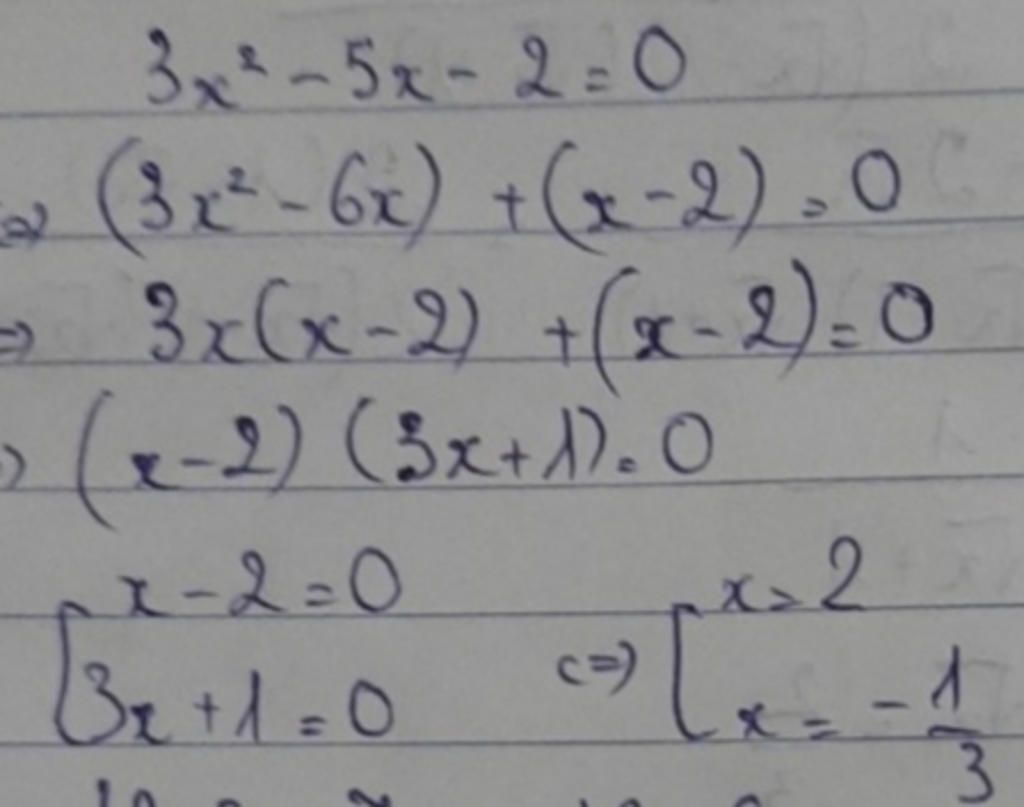 3x² - 5x - 2 = 0
<=> (3x² - 6x) + (x - 2) = 0
=> 3x(x - 2) + (x - 2) = 0
(x - 2) (3x + 1) = 0
[x - 2 = 0 <=> [x = 2
[3x + 1 = 0 [x = -1/3